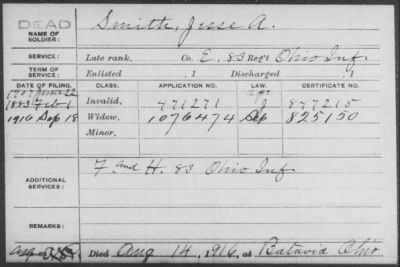 DEAD
NAME OF SOLDIER: Smith, Jesse A.
SERVICE: Late rank, Co. E. 83 Reg't Ohio Inf.
TERM OF SERVICE: Enlisted , 1 Discharged , 1
DATE OF FILING. CLASS. APPLICATION NO. LAW. CERTIFICATE NO.
1907 June 22
1883 Feb 1 Invalid, 471271 J 847215
1916 Sep 18 Widow, 1076474 Sep 825150
Minor,
ADDITIONAL SERVICES: F and H. 83 Ohio Inf.
REMARKS:
Died Aug 14, 1916, at Batavia Ohio